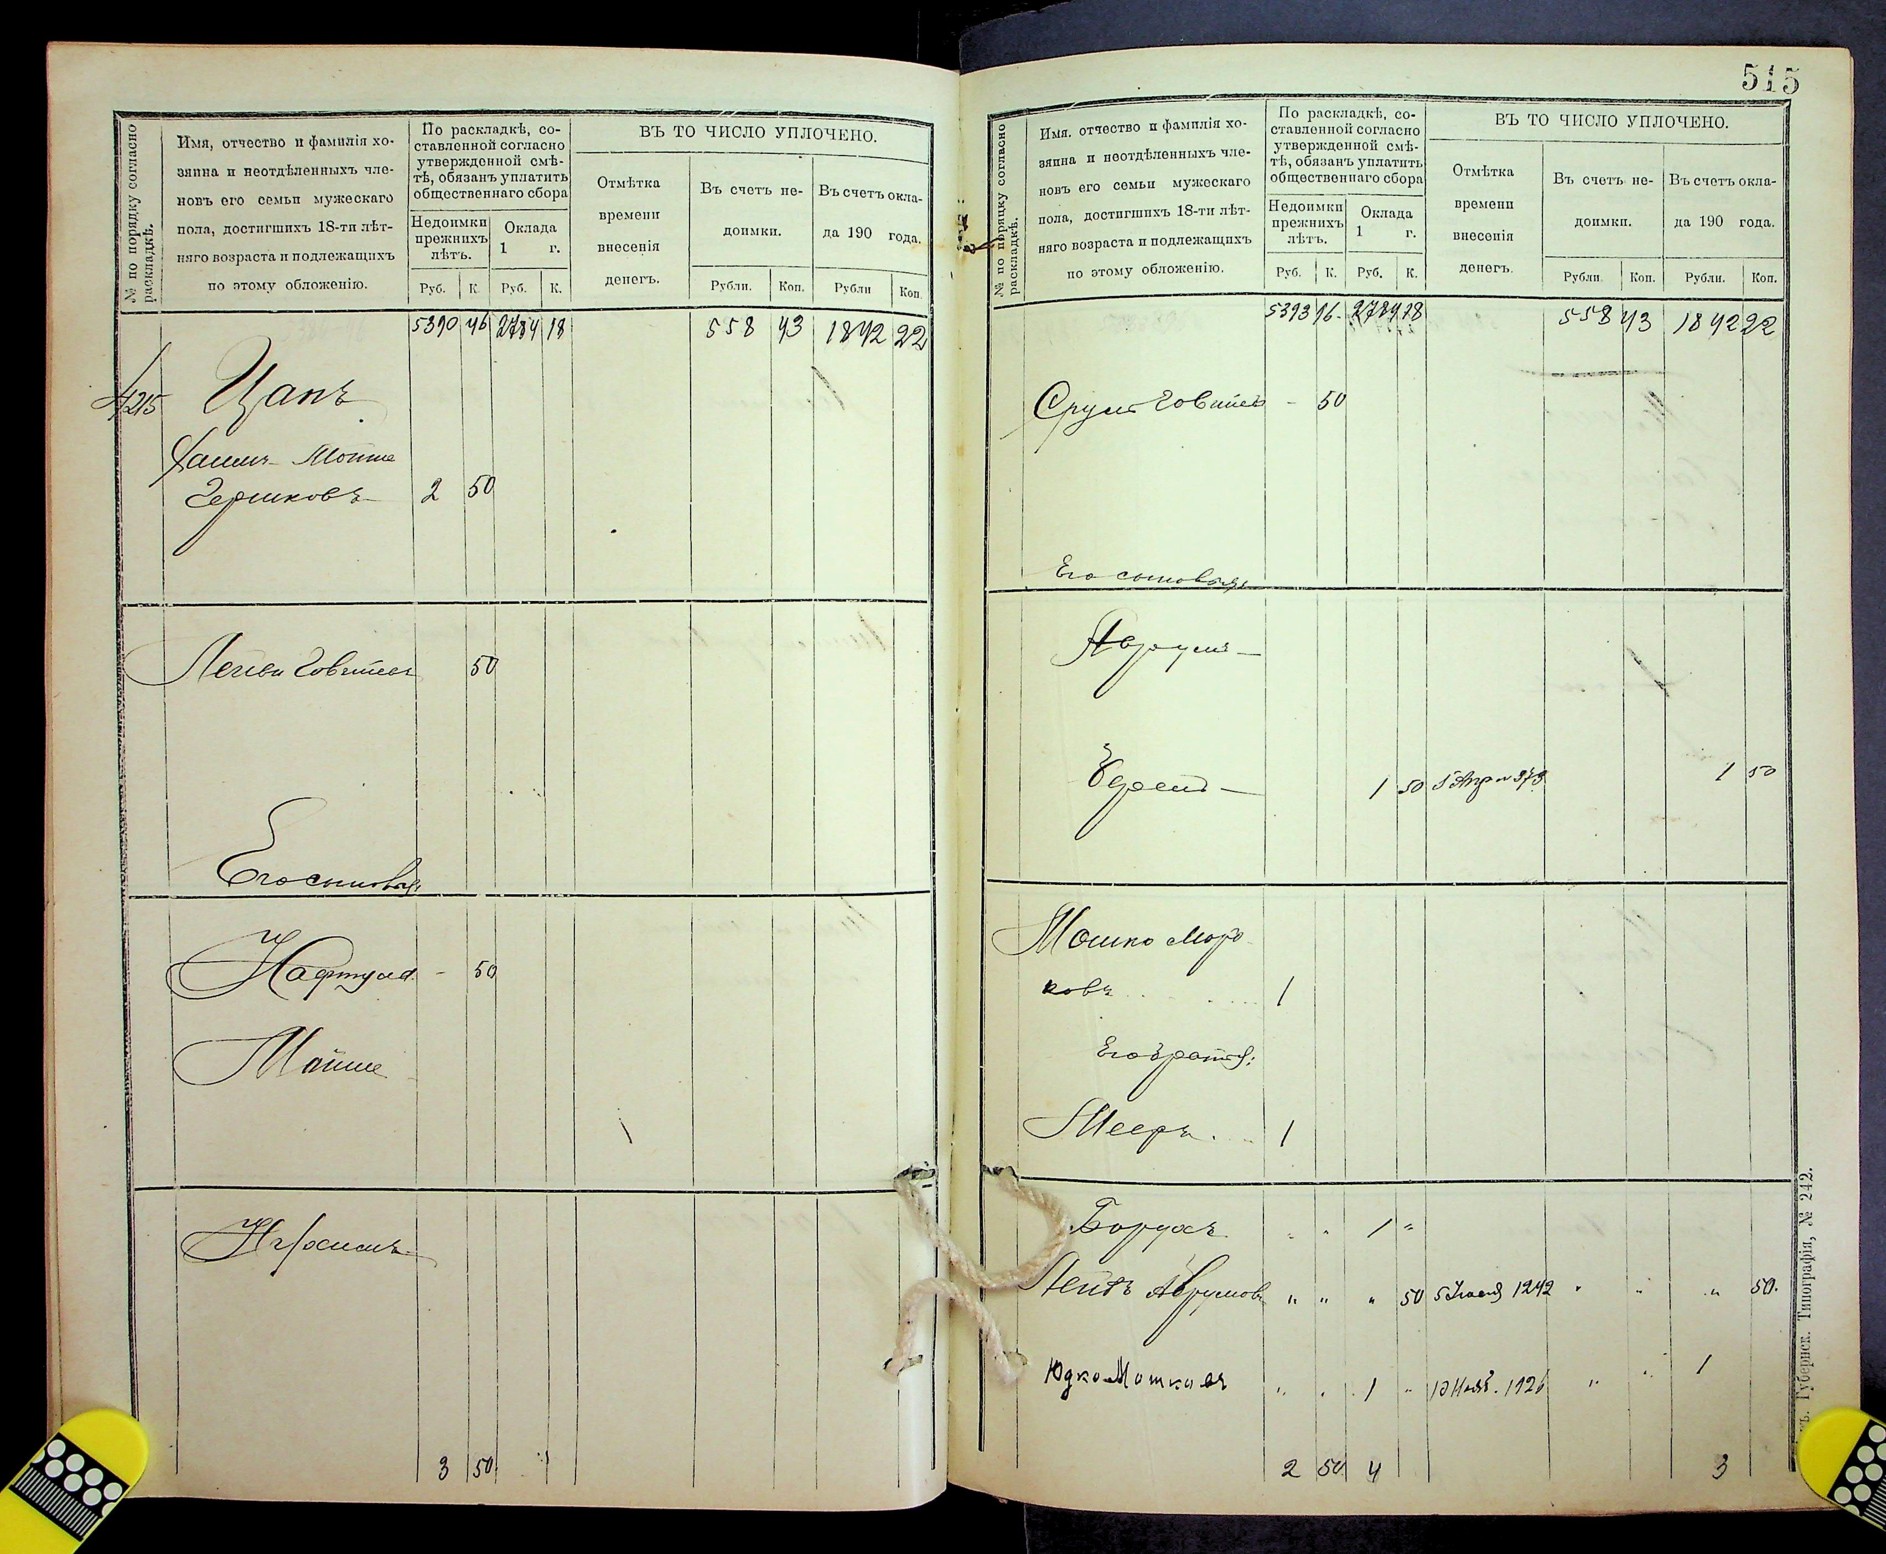 № по порядку согласно раскладкѣ.
Имя, отчество и фамилія хо-
зяина и неотдѣленныхъ чле-
новъ его семьи мужескаго
пола, достигшихъ 18-ти лѣт-
няго возраста и подлежащихъ
по этому обложенію.
По раскладкѣ, со-
ставленной согласно
утвержденной смѣ-
тѣ, обязанъ уплатить
общественнаго сбора
Недоимки
прежнихъ
лѣтъ.
Оклада
1 г.
Руб. К. Руб. К.
ВЪ ТО ЧИСЛО УПЛОЧЕНО.
Отмѣтка
времени
внесенія
денегъ.
Въ счетъ не-
доимки.
Въ счетъ окла-
да 190 года.
Рубли. Коп. Рубли Коп
5390 46 2784 18 558 43 1842 22
1215 Цапъ
Хаимъ Мойше
Гершковъ 2 50
Лейба Говшіевъ 50
Его сыновья:
Нафтула - 50
Мойше
Нухимъ
3 50
515
№ по порядку согласно раскладкѣ.
Имя. отчество и фамилія хо-
зяина и неотдѣленныхъ чле-
новъ его семьи мужескаго
пола, достигшихъ 18-ти лѣт-
няго возраста и подлежащихъ
по этому обложенію.
По раскладкѣ, со-
ставленной согласно
утвержденной смѣ-
тѣ, обязанъ уплатить
общественнаго сбора
Недоимки
прежнихъ
лѣтъ.
Оклада
1 г.
Руб. К. Руб. К.
ВЪ ТО ЧИСЛО УПЛОЧЕНО.
Отмѣтка
времени
внесенія
денегъ.
Въ счетъ не-
доимки.
Въ счетъ окла-
да 190 года.
Рубли. Коп. Рубли. Коп.
5393 96 2784 18 558 43 1842 22
Сруль Говшіевъ - 50
Его сыновья:
Аврумъ —
1 50 5 Апр 1 50
Мошко Морд
ковъ 1
Его братья:
Мееръ 1
Борухъ " " 1 "
Лейбъ Аврумовъ " " " 50 1242 " " " 50.
Юдко Мошковъ " " 1 " 1926 " " 1
2 50 4 3
Губернск. Типографія, № 242.